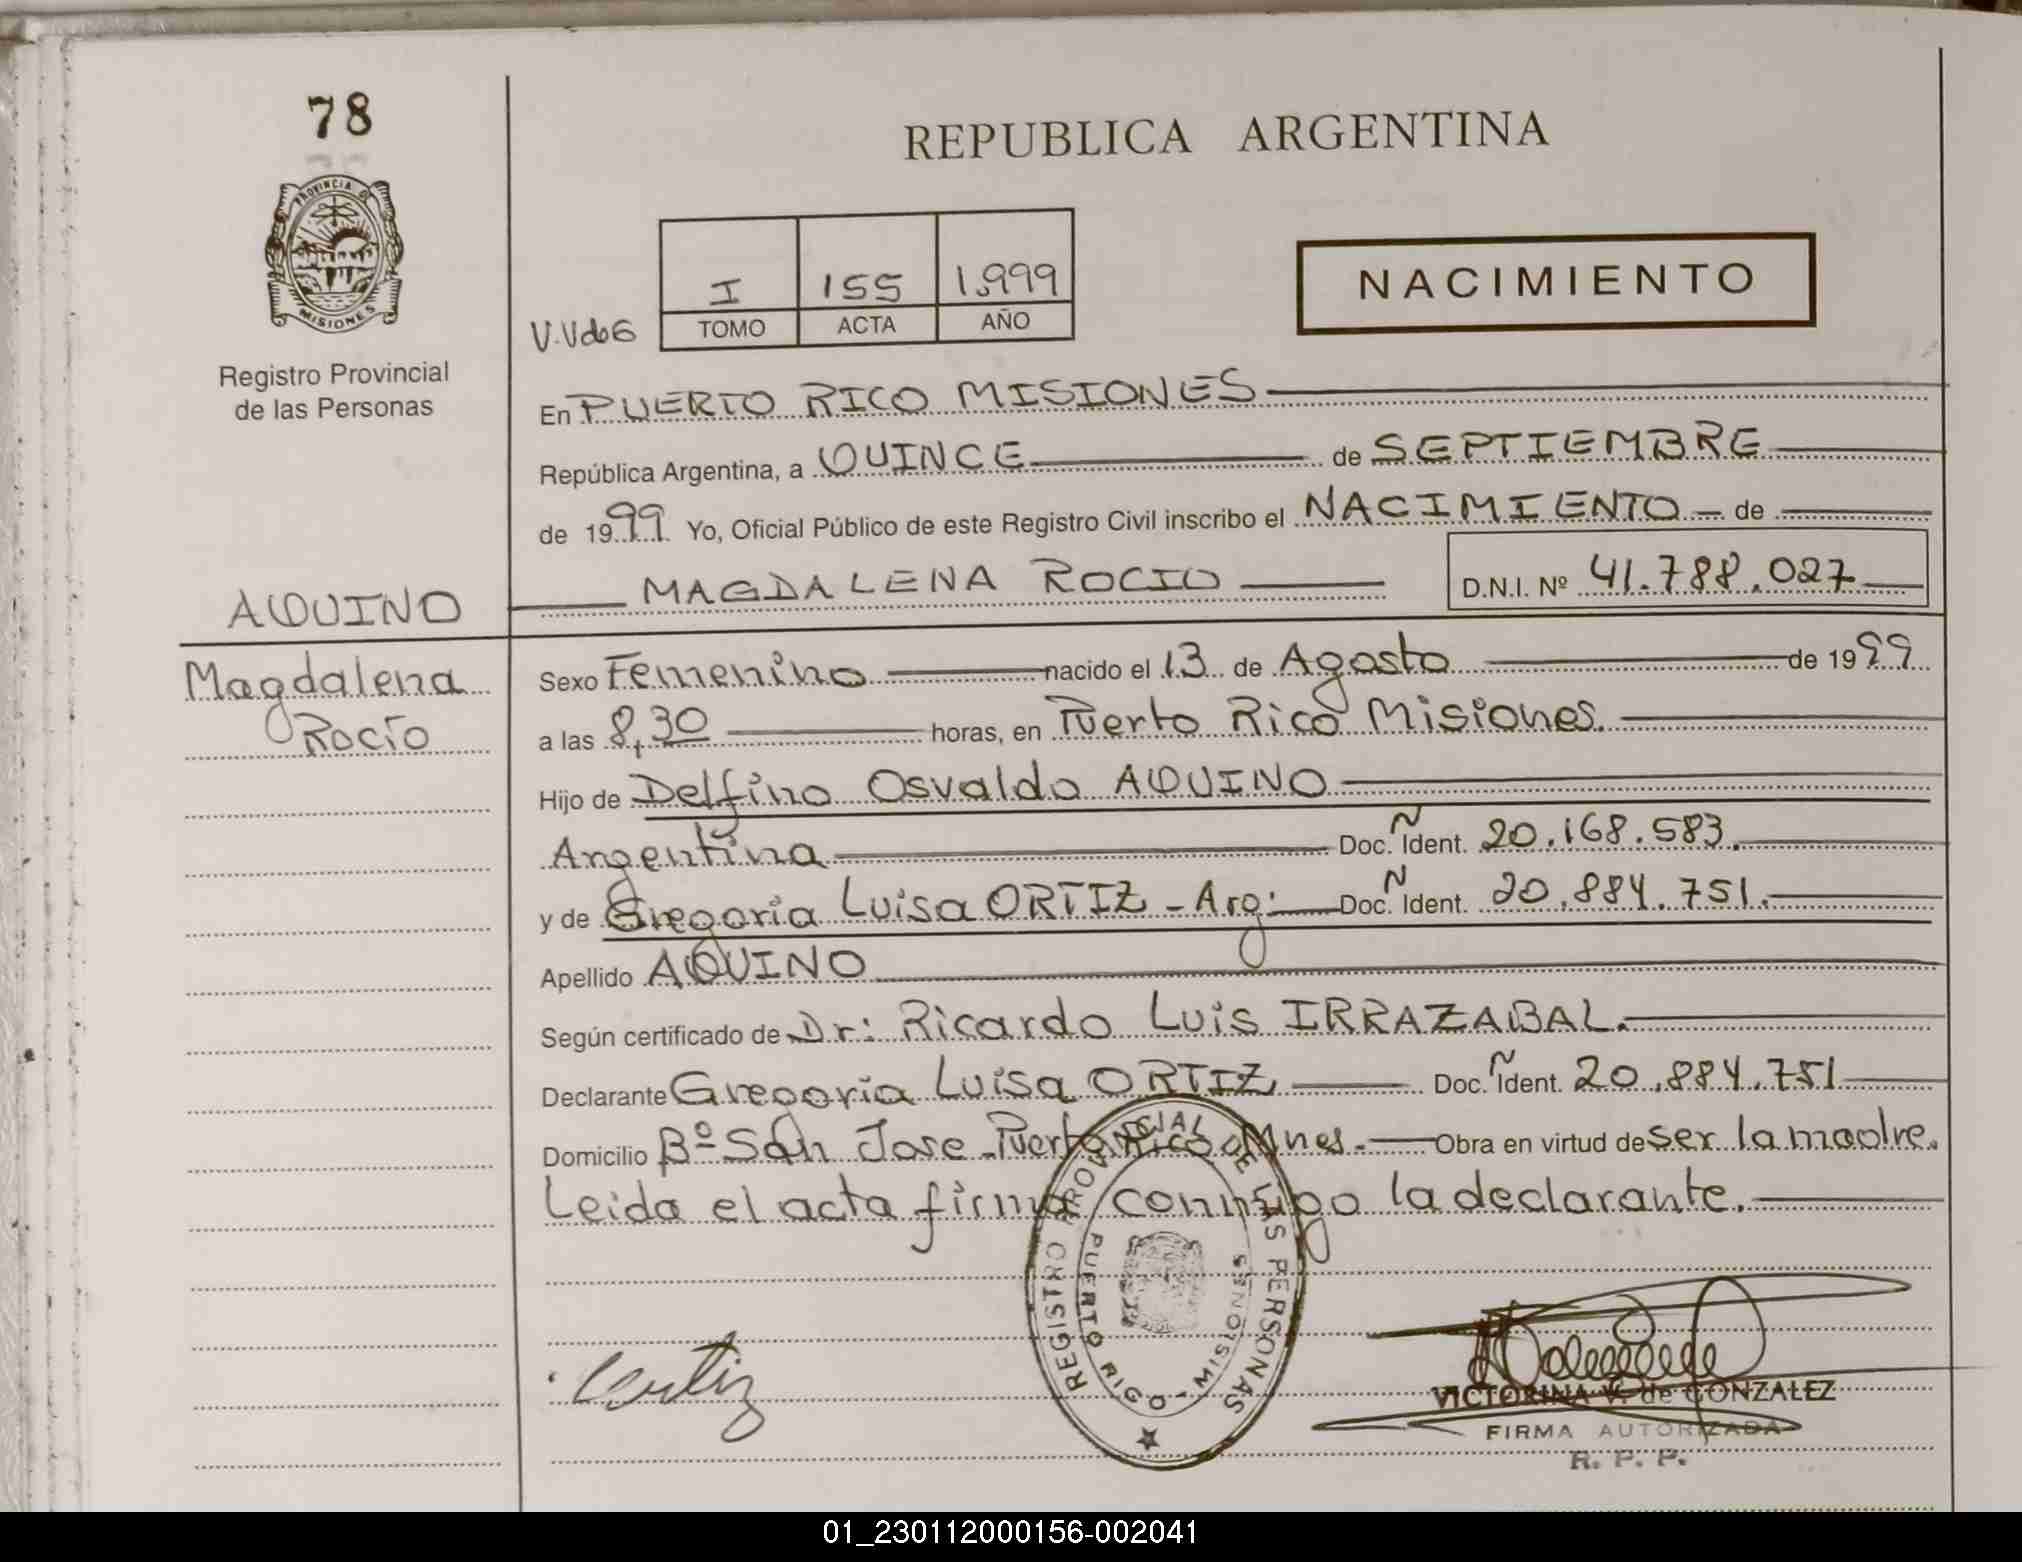 78
PROVINCIA DE
MISIONES
Registro Provincial
de las Personas
AQUINO
Magdalena
Rocío
REPUBLICA ARGENTINA
I 155 1.999
TOMO ACTA AÑO
V.VdeG
NACIMIENTO
En PUERTO RICO MISIONES
República Argentina, a QUINCE de SEPTIEMBRE
de 1999 Yo, Oficial Público de este Registro Civil inscribo el NACIMIENTO de
MAGDALENA ROCIO D.N.I. Nº 41.788.027
Sexo Femenino nacido el 13 de Agosto de 1999
a las 8,30 horas, en Puerto Rico Misiones.
Hijo de Delfino Osvaldo AQUINO
Argentina Doc. Ñ Ident. 20.168.583.
y de Gregoria Luisa ORTIZ - Arg: Doc. Ñ Ident. 20.884.751.
Apellido AQUINO
Según certificado de Dr: Ricardo Luis IRRAZABAL.
Declarante Gregoria Luisa ORTIZ Doc. Ñ Ident. 20.884.751
Domicilio Bº San Jose - Puerto Rico Mnes. Obra en virtud de ser la madre.
Leida el acta firma conmigo la declarante.
REGISTRO PROVINCIAL DE LAS PERSONAS
PUERTO RICO - MISIONES
VICTORINA V. de GONZALEZ
FIRMA AUTORIZADA
R. P. P.
01_230112000156-002041